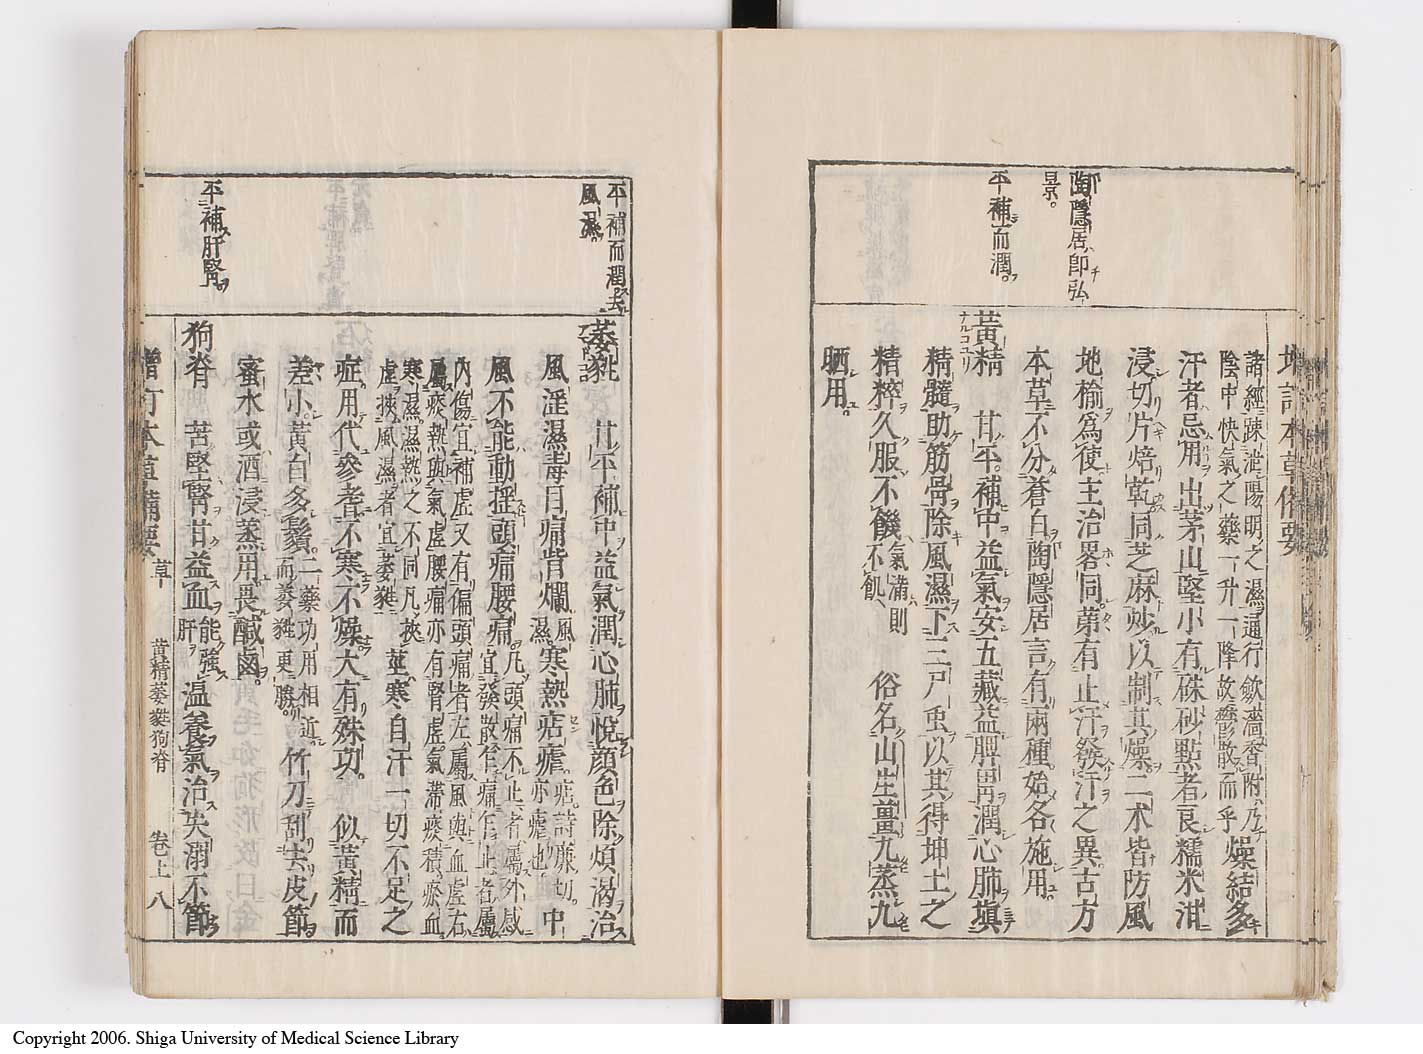 陶隱居即弘
景。
平補而潤。
增訂本草備要
諸經疎泄陽明之濕通行歛濇香附乃
陰中快氣之藥一升一降故鬱散而平
燥結多
汗者忌用出茅山堅小有硃砂點者良糯米泔
浸切片焙乾同芝麻炒以制其燥二朮皆防風
地榆爲使主治畧同第有止汗發汗之異古方
本草不分蒼白陶隱居言有兩種始各施用。
黃精
ナルコユリ
甘平。補中益氣安五藏益脾胃潤心肺塡
精髓助筋骨除風濕下三尸虫以其得坤土之
精粹久服不饑
氣滿則
不飢
俗名山生薑九蒸九
晒用。
平補而潤去
風濕。
平補肝腎。
萎蕤
甘平補中益氣潤心肺悅顏色除煩渴治
風淫濕毒目痛眥爛
風
濕。
寒熱痁瘧。
痁。詩廉切。
亦瘧也
中
風不能動揺頭痛腰痛。
凡頭痛不止者屬外感
宜發散乍痛乍止者屬
內傷宜補虛又有偏頭痛者左屬風與血虛右
屬痰熱與氣虛腰痛亦有腎虛氣滯痰積瘀血
寒濕濕熱之不同凡挾
虛挾風濕者宜萎蕤
莖寒自汗一切不足之
症用代參耆不寒不燥大有殊功。似黃精而
差小。黃白多鬚。
二藥功用相近
而萎蕤更勝。
竹刀刮去皮節
蜜水或酒浸蒸用畏鹹鹵。
狗脊
苦堅腎甘益血
能強
肝
温養氣治失溺不節
增訂本草備要
草
黃精萎蕤狗脊
卷上
八
Copyright 2006. Shiga University of Medical Science Library